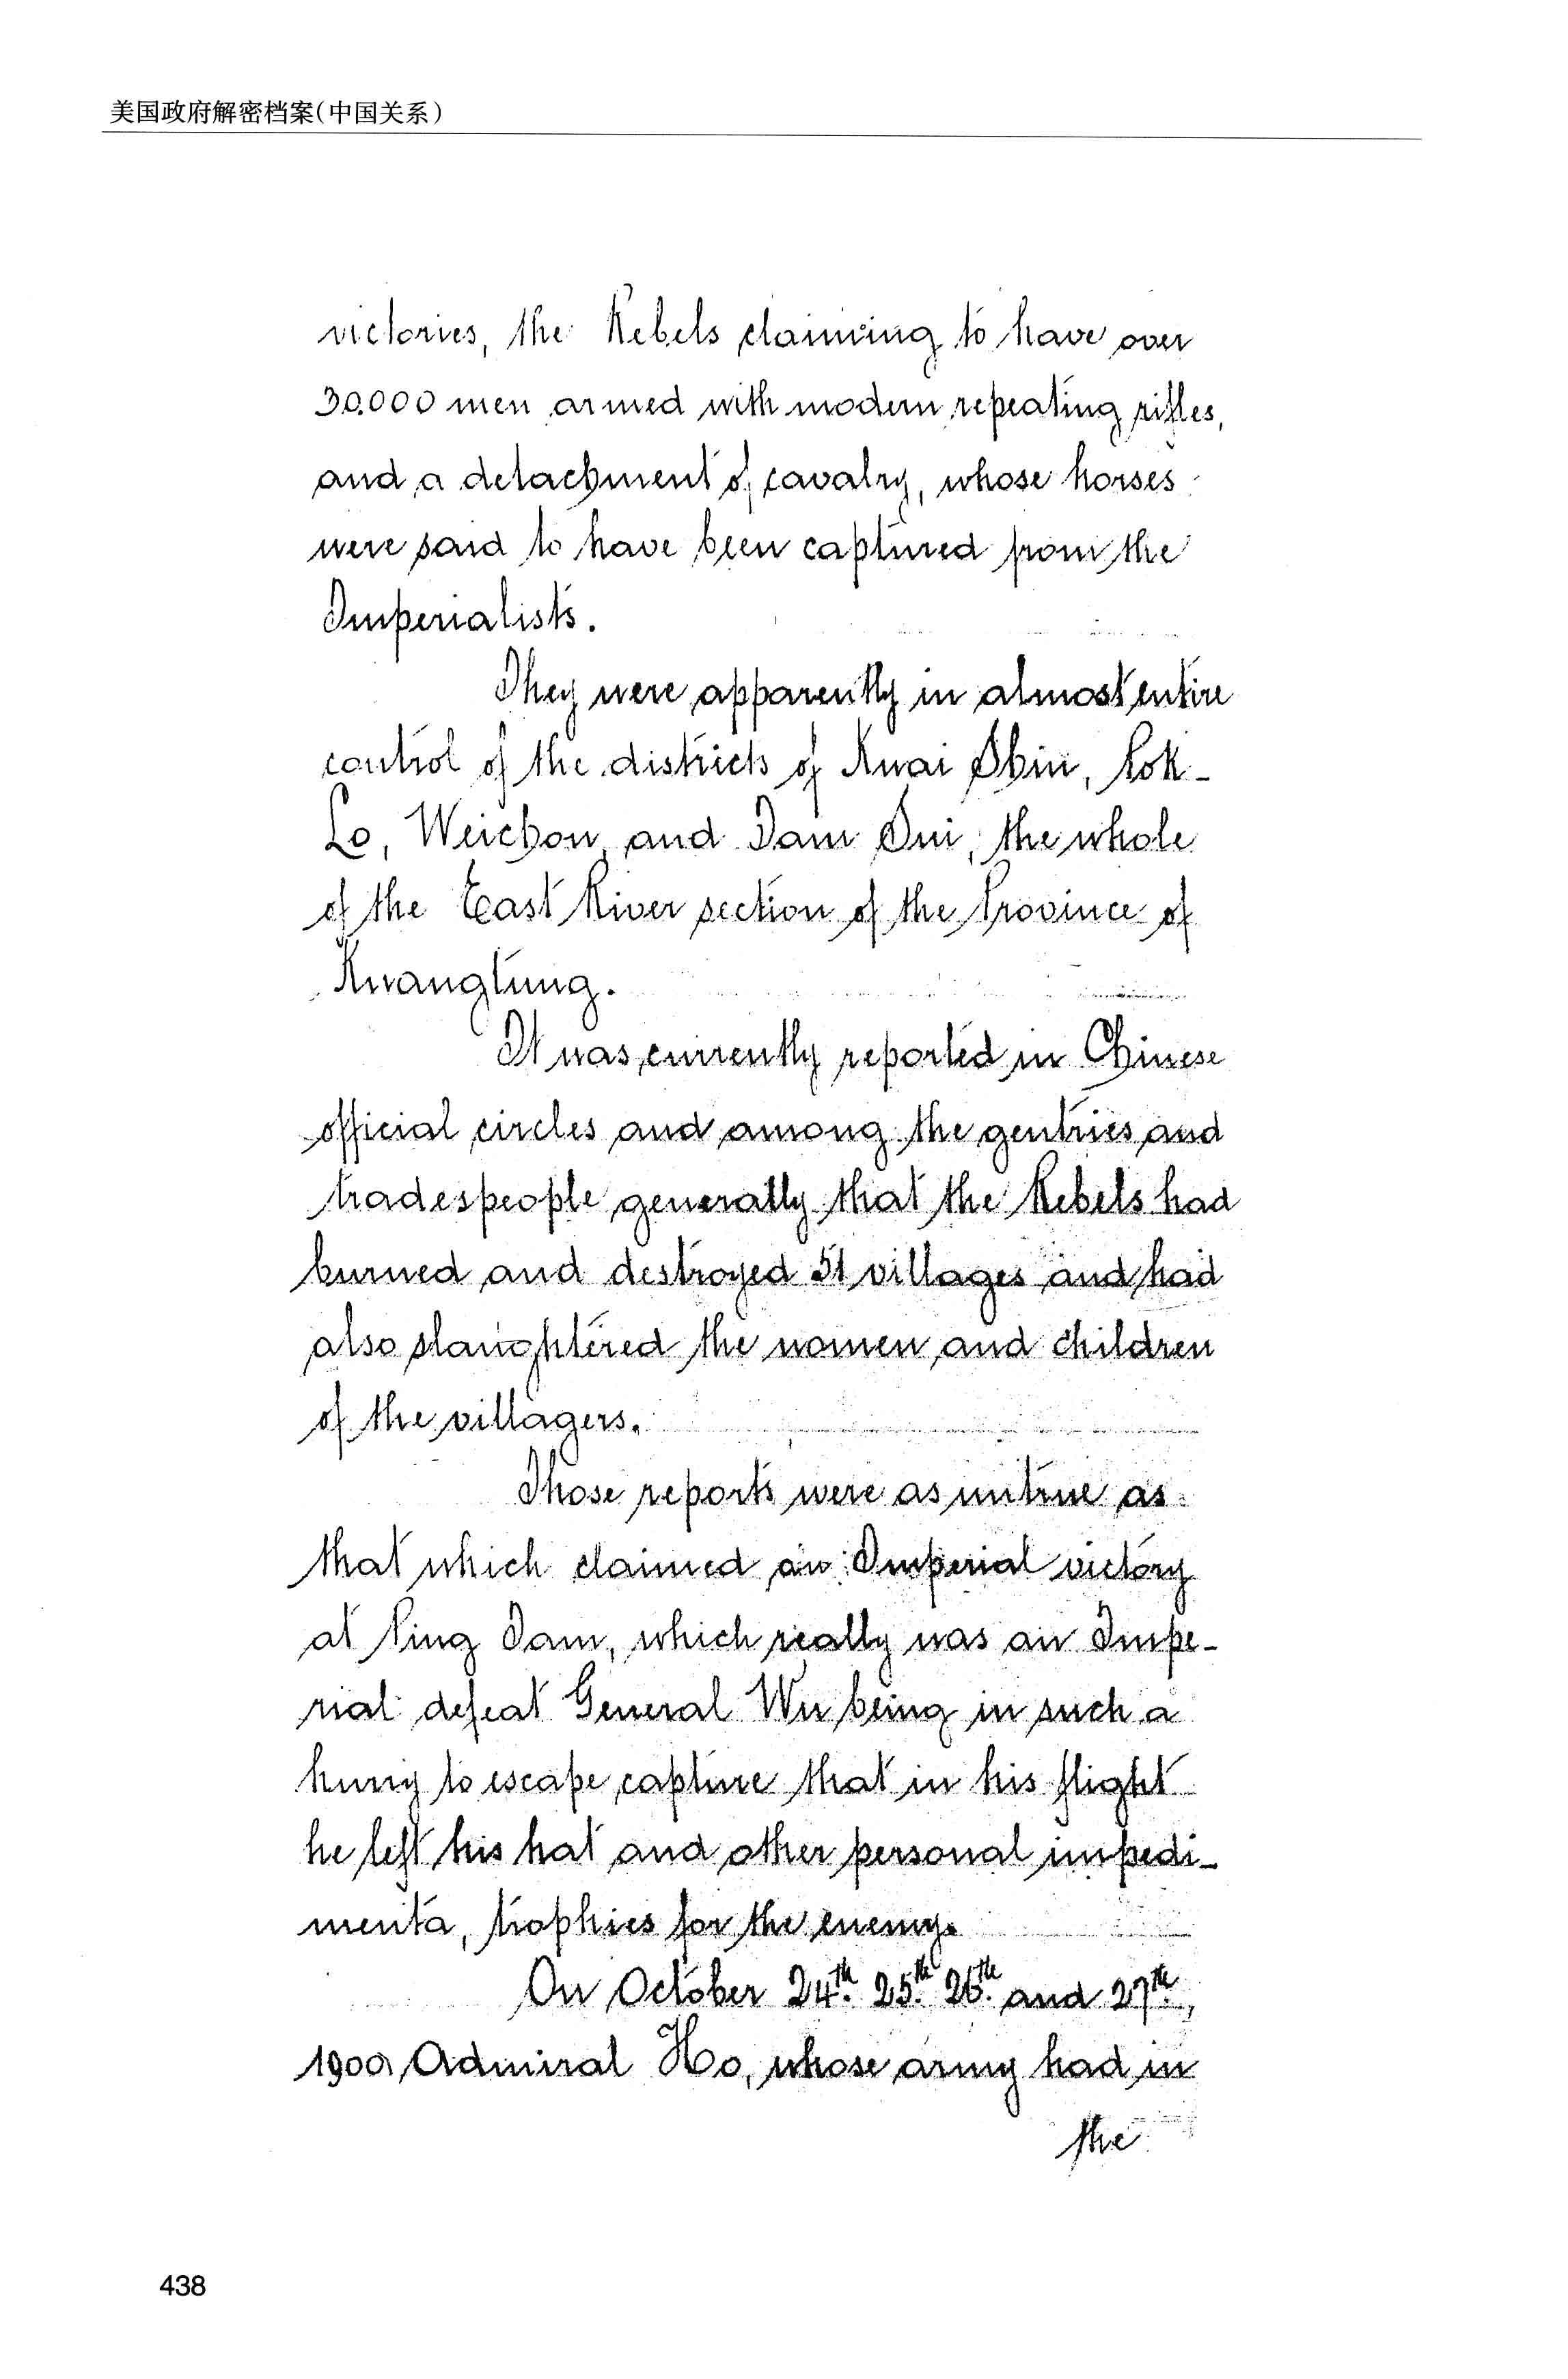 美国政府解密档案(中国关系)
victories, the Rebels claiming to have over
30.000 men armed with modern repeating rifles,
and a detachment of cavalry, whose horses
were said to have been captured from the
Imperialists.
They were apparently in almost entire
control of the districts of Kwai Shin, Pok-
Lo, Weichow and Tam Sui, the whole
of the East River section of the Province of
Kwangtung.
It was currently reported in Chinese
official circles and among the gentries and
tradespeople generally that the Rebels had
burned and destroyed 51 villages and had
also slaughtered the women and children
of the villagers.
Those reports were as untrue as
that which claimed an Imperial victory
at Ping Tam, which really was an Impe-
rial defeat General Wu being in such a
hurry to escape capture that in his flight
he left his hat and other personal impedi-
menta, trophies for the enemy.
On October 24th. 25th. 26th. and 27th.,
1900, Admiral Ho, whose army had in
the
438